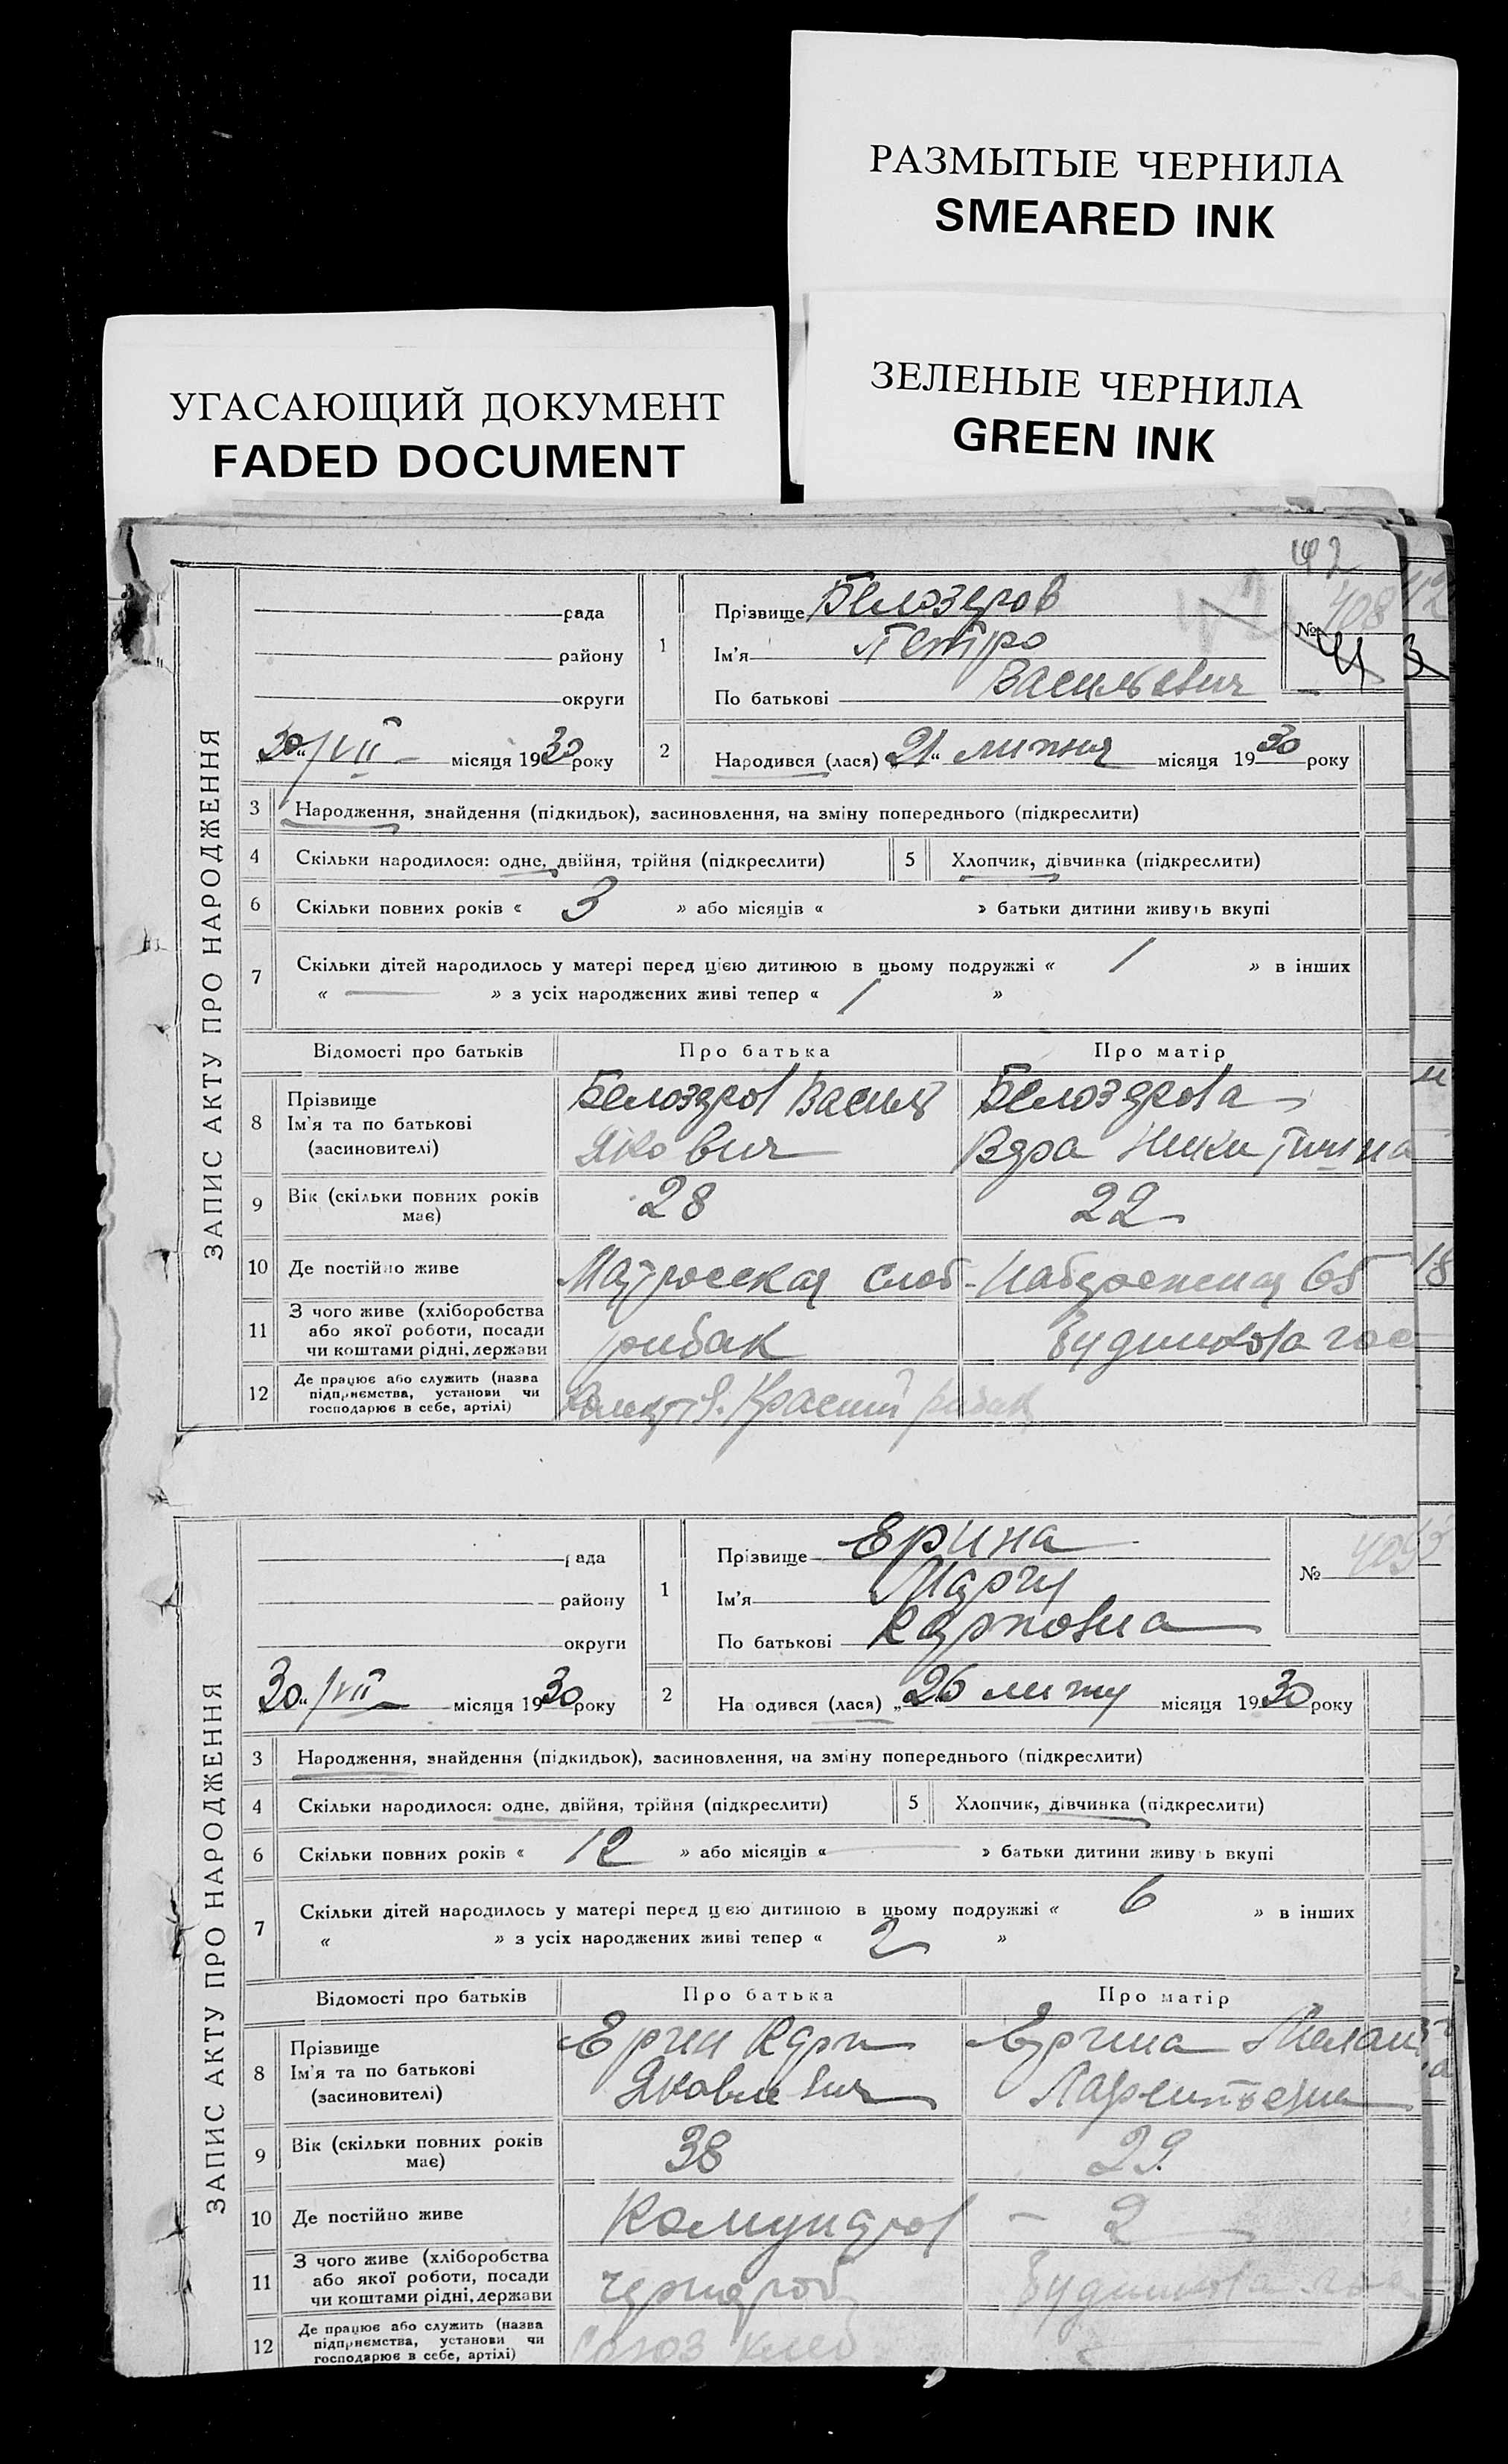 РАЗМЫТЫЕ ЧЕРНИЛА
SMEARED INK
ЗЕЛЕНЫЕ ЧЕРНИЛА
GREEN INK
УГАСАЮЩИЙ ДОКУМЕНТ
FADED DOCUMENT
42
ЗАПИС АКТУ ПРО НАРОДЖЕННЯ
рада
району
округи
30 "/VII місяця 1930 року
1
Прізвище Белозеров
Ім'я Петро
По батькові Васильевич
№ 408
2 Народився (лася) "21" липня місяця 1930 року
3 Народження, знайдення (підкидьок), засиновлення, на зміну попереднього (підкреслити)
4 Скільки народилося: одне, двійня, трійня (підкреслити) 5 Хлопчик, дівчинка (підкреслити)
6 Скільки повних років « 3 » або місяців « » батьки дитини живуть вкупі
7 Скільки дітей народилось у матері перед цією дитиною в цьому подружжі « 1 » в інших
« — » з усіх народжених живі тепер « 1 »
Відомості про батьків Про батька Про матір
8 Прізвище Ім'я та по батькові (засиновителі)
Белозеров Василь Белозерова
Якович Вера Никитишна
9 Вік (скільки повних років має) 28 22
10 Де постійно живе Матросская слоб - Набережная 65
11 З чого живе (хліборобства або якої роботи, посади чи коштами рідні, держави рибак Будинкова гос
12 Де працює або служить (назва підприємства, установи чи господарює в себе, артілі) Красний рибак
ЗАПИС АКТУ ПРО НАРОДЖЕННЯ
рада
району
округи
30 "/VII місяця 1930 року
1
Прізвище Ерина
Ім'я Мария
По батькові Карповна
№ 409
2 Народився (лася) "26 липня місяця 1930 року
3 Народження, знайдення (підкидьок), засиновлення, на зміну попереднього (підкреслити)
4 Скільки народилося: одне, двійня, трійня (підкреслити) 5 Хлопчик, дівчинка (підкреслити)
6 Скільки повних років « 12 » або місяців « — » батьки дитини живуть вкупі
7 Скільки дітей народилось у матері перед цією дитиною в цьому подружжі « 6 » в інших
« » з усіх народжених живі тепер « 2 »
Відомості про батьків Про батька Про матір
8 Прізвище Ім'я та по батькові (засиновителі)
Ерин Карп Ерина Мелан
Яковлевич
9 Вік (скільки повних років має) 38 29
10 Де постійно живе Комунаров — 2
11 З чого живе (хліборобства або якої роботи, посади чи коштами рідні, держави чернороб Будинкова гос
12 Де працює або служить (назва підприємства, установи чи господарює в себе, артілі) Союз хлеб